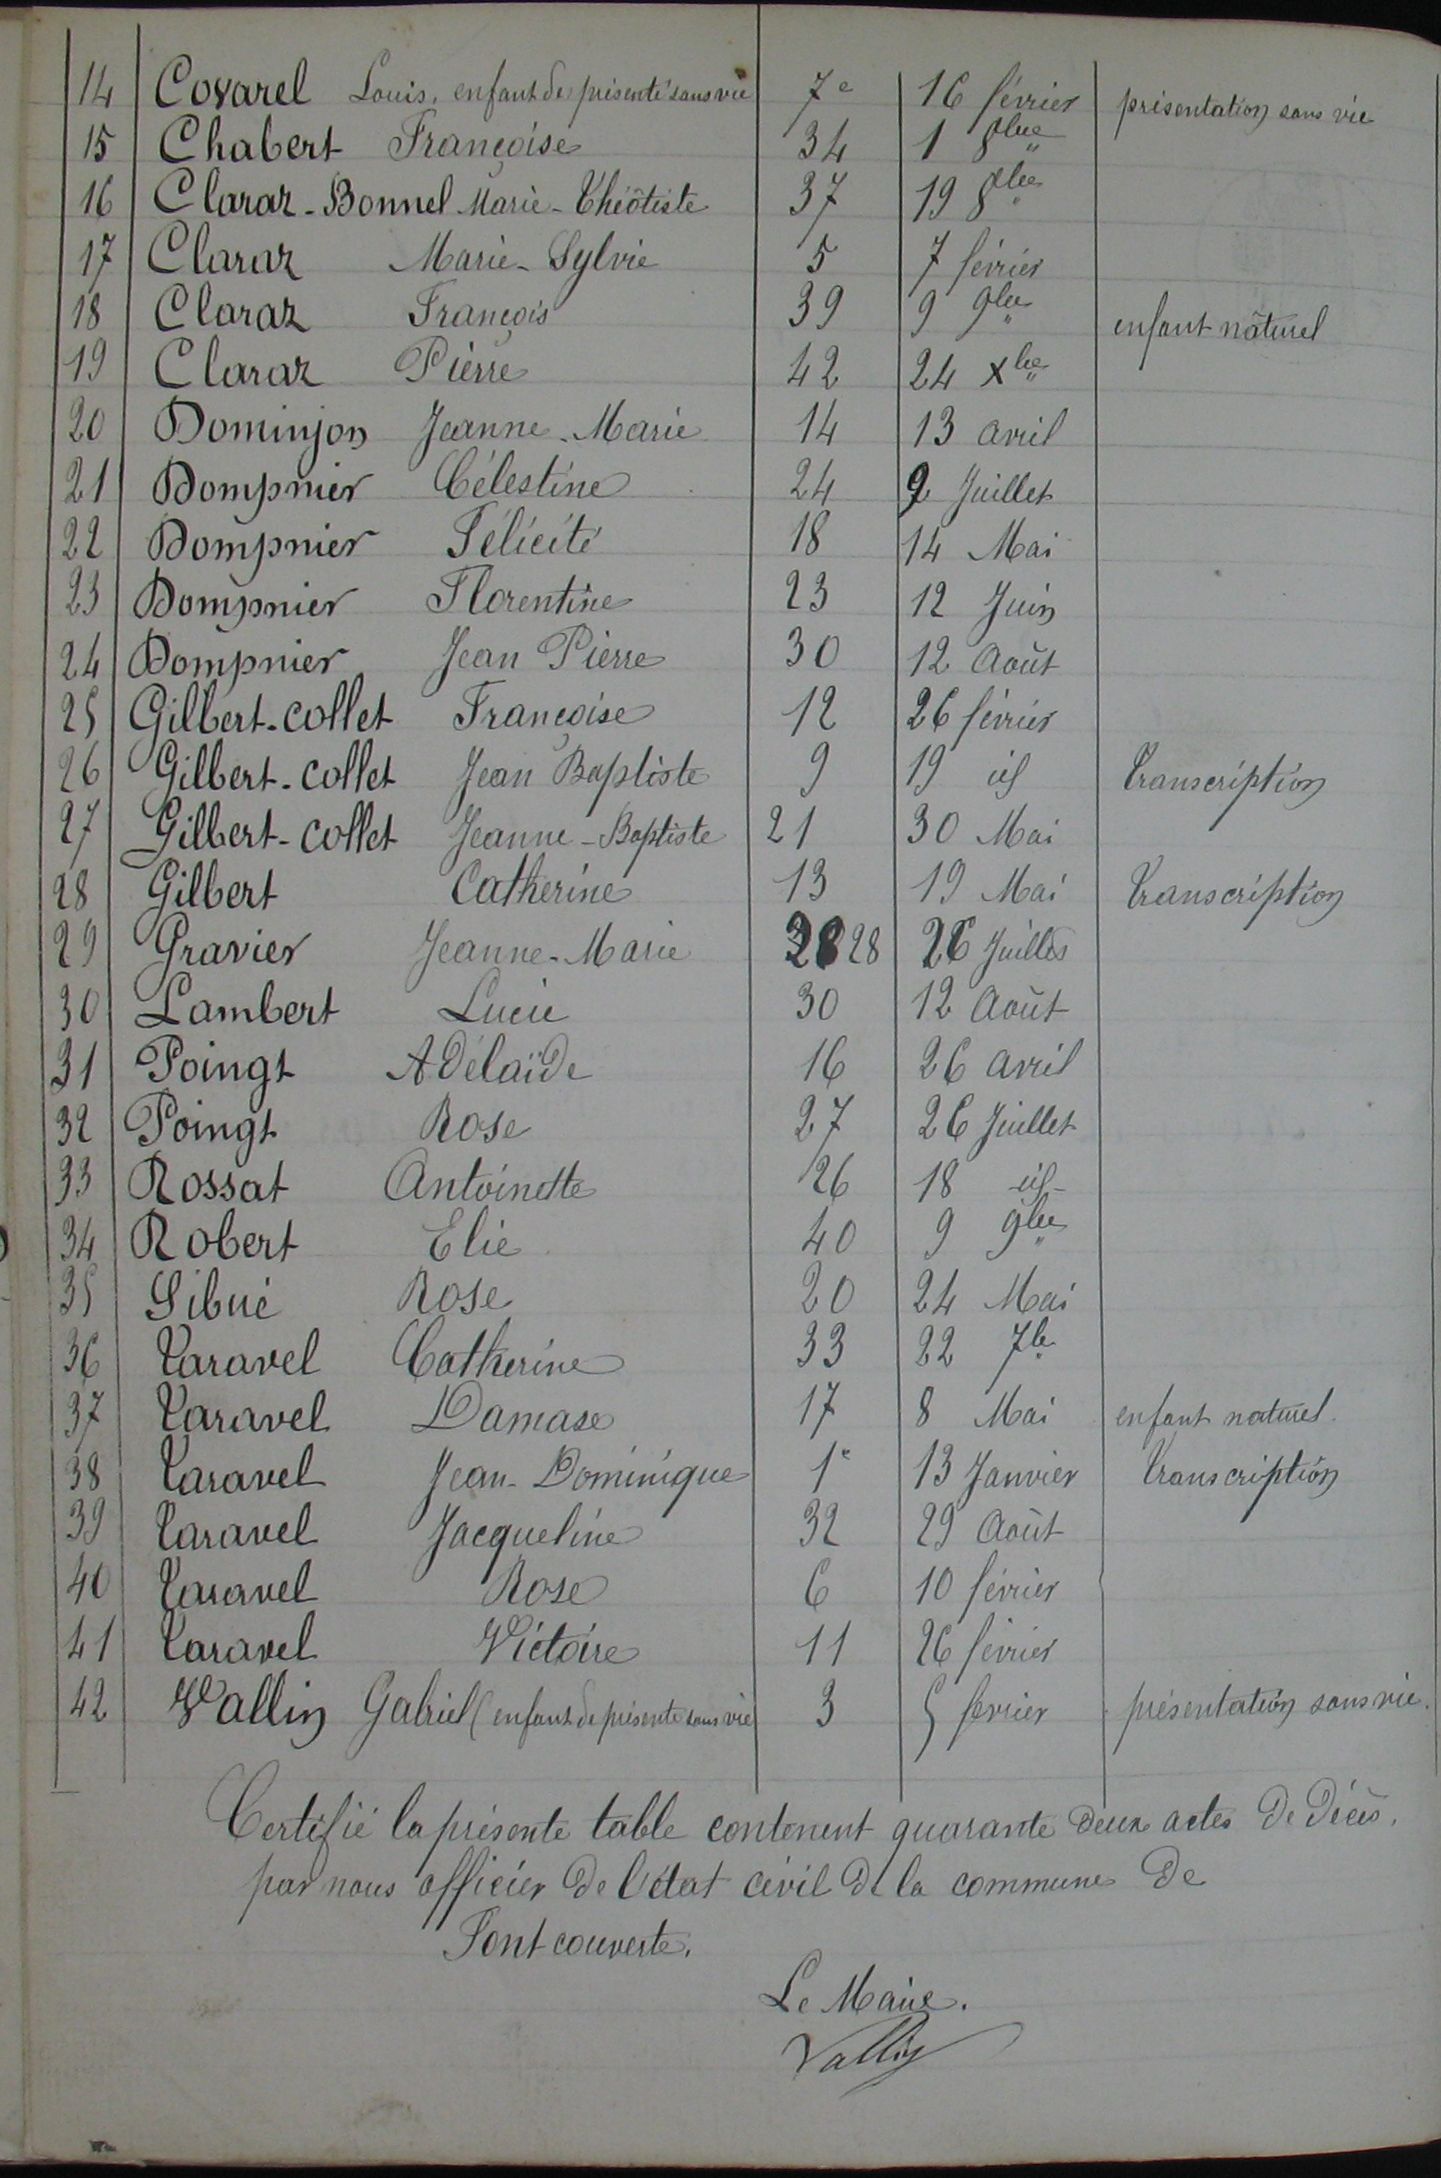 14 Covarel Louis, enfant de présenté sans vie 7e 16 février présentation sans vie
15 Chabert Françoise 34 1 8bre
16 Claraz-Bonnel Marie-Théotiste 37 19 8bre
17 Claraz Marie-Sylvie 5 7 février
18 Claraz François 39 9 9bre enfant naturel
19 Claraz Pierre 42 24 Xbre
20 Dominjon Jeanne-Marie 14 13 avril
21 Dompnier Célestine 24 9 Juillet
22 Dompnier Félicité 18 14 Mai
23 Dompnier Florentine 23 12 Juin
24 Dompnier Jean Pierre 30 12 Août
25 Gilbert-collet Françoise 12 26 février
26 Gilbert-collet Jean Baptiste 9 19 id Transcription
27 Gilbert-collet Jeanne-Baptiste 21 30 Mai
28 Gilbert Catherine 13 19 Mai Transcription
29 Gravier Jeanne-Marie 28 28 26 Juillet
30 Lambert Lucie 30 12 Août
31 Poingt Adélaïde 16 26 avril
32 Poingt Rose 27 26 Juillet
33 Rossat Antoinette 26 18 id
34 Robert Elie 40 9 9bre
35 Sibué Rose 20 24 Mai
36 Taravel Catherine 33 22 7b
37 Taravel Damase 17 8 Mai enfant naturel.
38 Taravel Jean-Dominique 1e 13 Janvier Transcription
39 Taravel Jacqueline 32 29 Août
40 Taravel Rose 6 10 février
41 Taravel Victoire 11 26 février
42 Vallin Gabriel (enfant de présenté sans vie 3 5 fevrier présentation sans vie.
Certifié la présente table contenent quarante deux actes de décès.
par nous officier de l'état civil de la commune de
Fontcouverte.
Le Maire.
Vallin